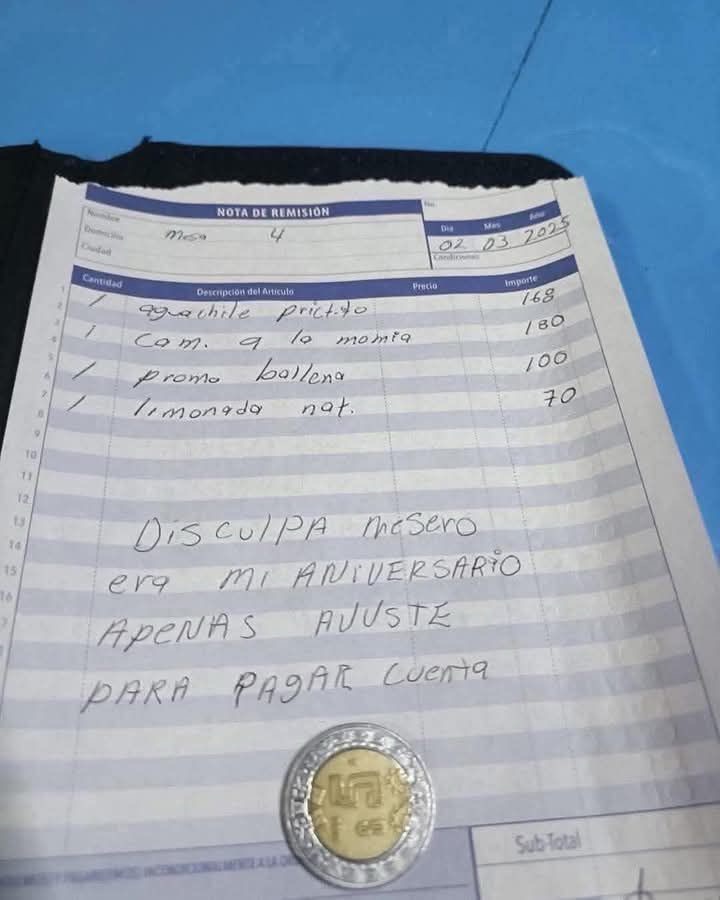 NOTA DE REMISIÓN
No.
Nombre
Domicilio
Ciudad
mesa 4
Dia Mes Año
02 03 2025
Condiciones
Cantidad Descripción del Artículo Precio Importe
1 aguachile prictito 168
1 cam. a la momia 180
1 promo ballena 100
1 limonada nat. 70
DiSCUlPA meSero
era Mi ANiVERSARiO
APeNAS AJUSTE
PARA PAgAR Cuenta
$5
Sub-Total